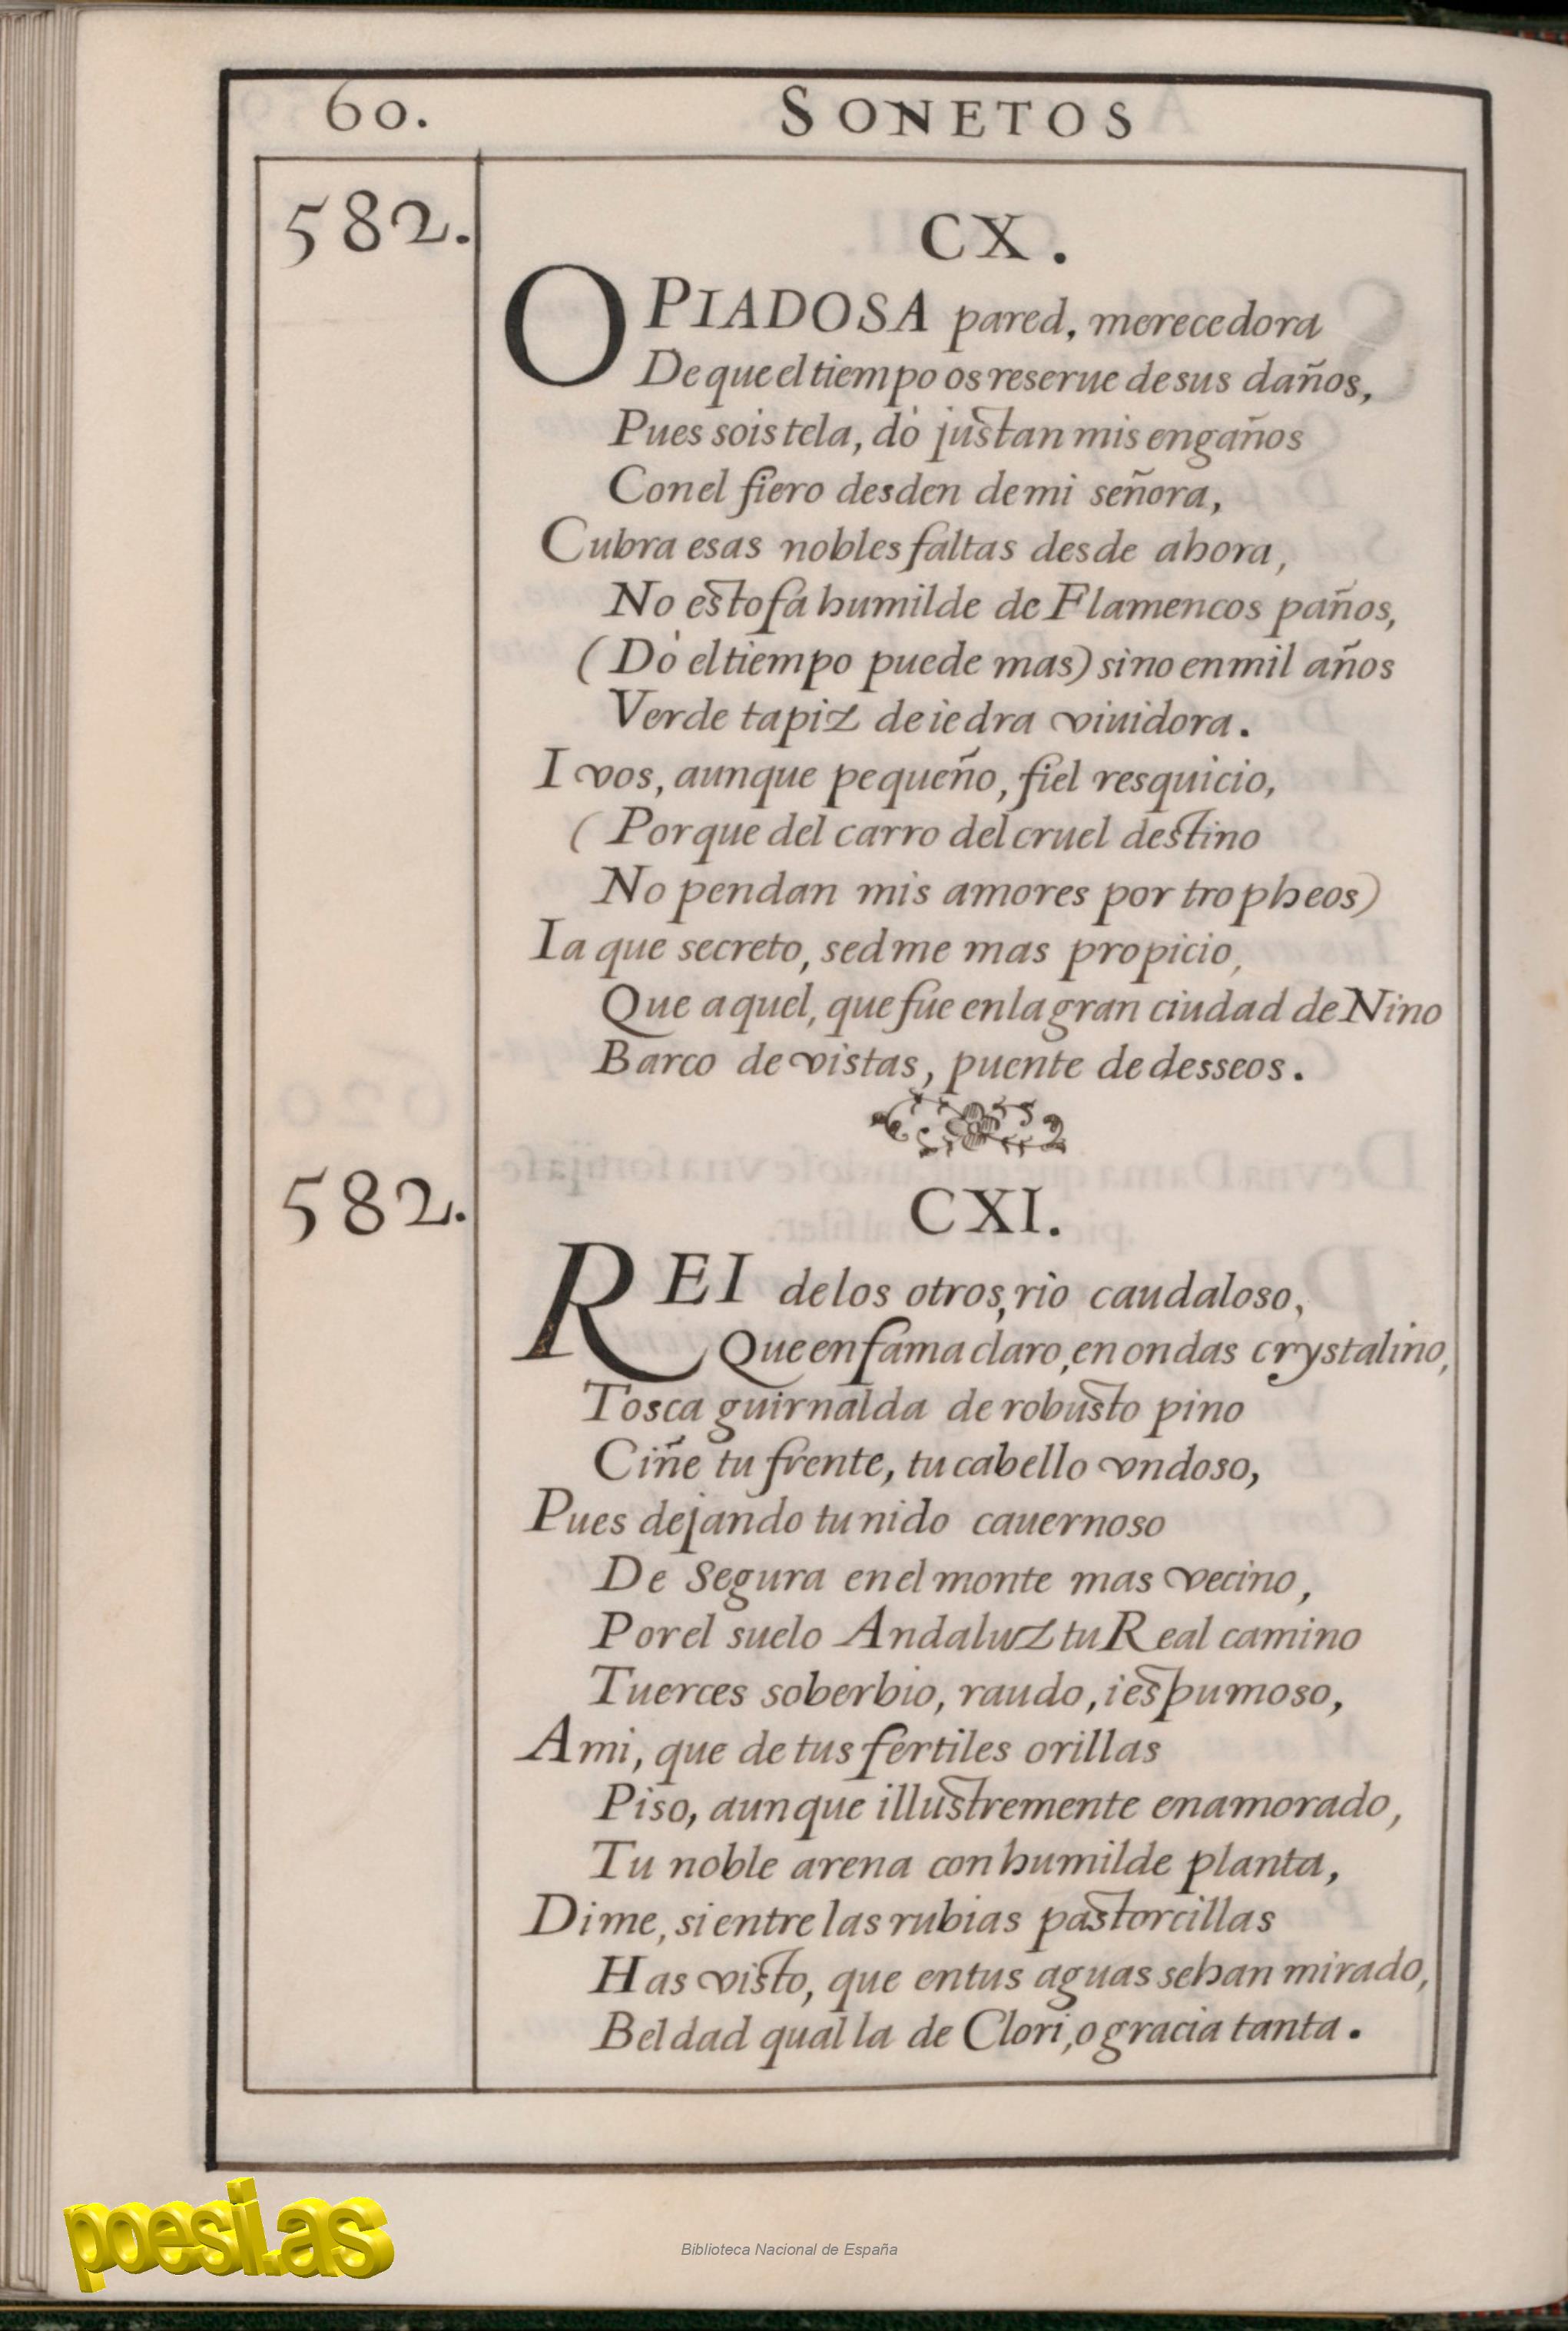 60.
SONETOS
582.
CX.
O PIADOSA pared, merecedora
De que el tiempo os reserue de sus daños,
Pues sois tela, dò justan mis engaños
Con el fiero desden de mi señora,
Cubra esas nobles faltas desde ahora,
No estofa humilde de Flamencos paños,
(Dò el tiempo puede mas) sino en mil años
Verde tapiz de iedra viuidora.
I vos, aunque pequeño, fiel resquicio,
(Porque del carro del cruel destino
No pendan mis amores por tropheos)
Ia que secreto, sedme mas propicio,
Que aquel, que fue en la gran ciudad de Nino
Barco de vistas, puente de desseos.
582.
CXI.
REI de los otros, rìo caudaloso,
Que en fama claro, en ondas crystalino,
Tosca guirnalda de robusto pino
Ciñe tu frente, tu cabello vndoso,
Pues dejando tu nido cauernoso
De Segura en el monte mas vecino,
Por el suelo Andaluz tu Real camino
Tuerces soberbio, raudo, i espumoso,
A mi, que de tus fertiles orillas
Piso, aunque illustremente enamorado,
Tu noble arena con humilde planta,
Dime, si entre las rubias pastorcillas
Has visto, que en tus aguas se han mirado,
Beldad qual la de Clori, o gracia tanta.
poesi.as
Biblioteca Nacional de España